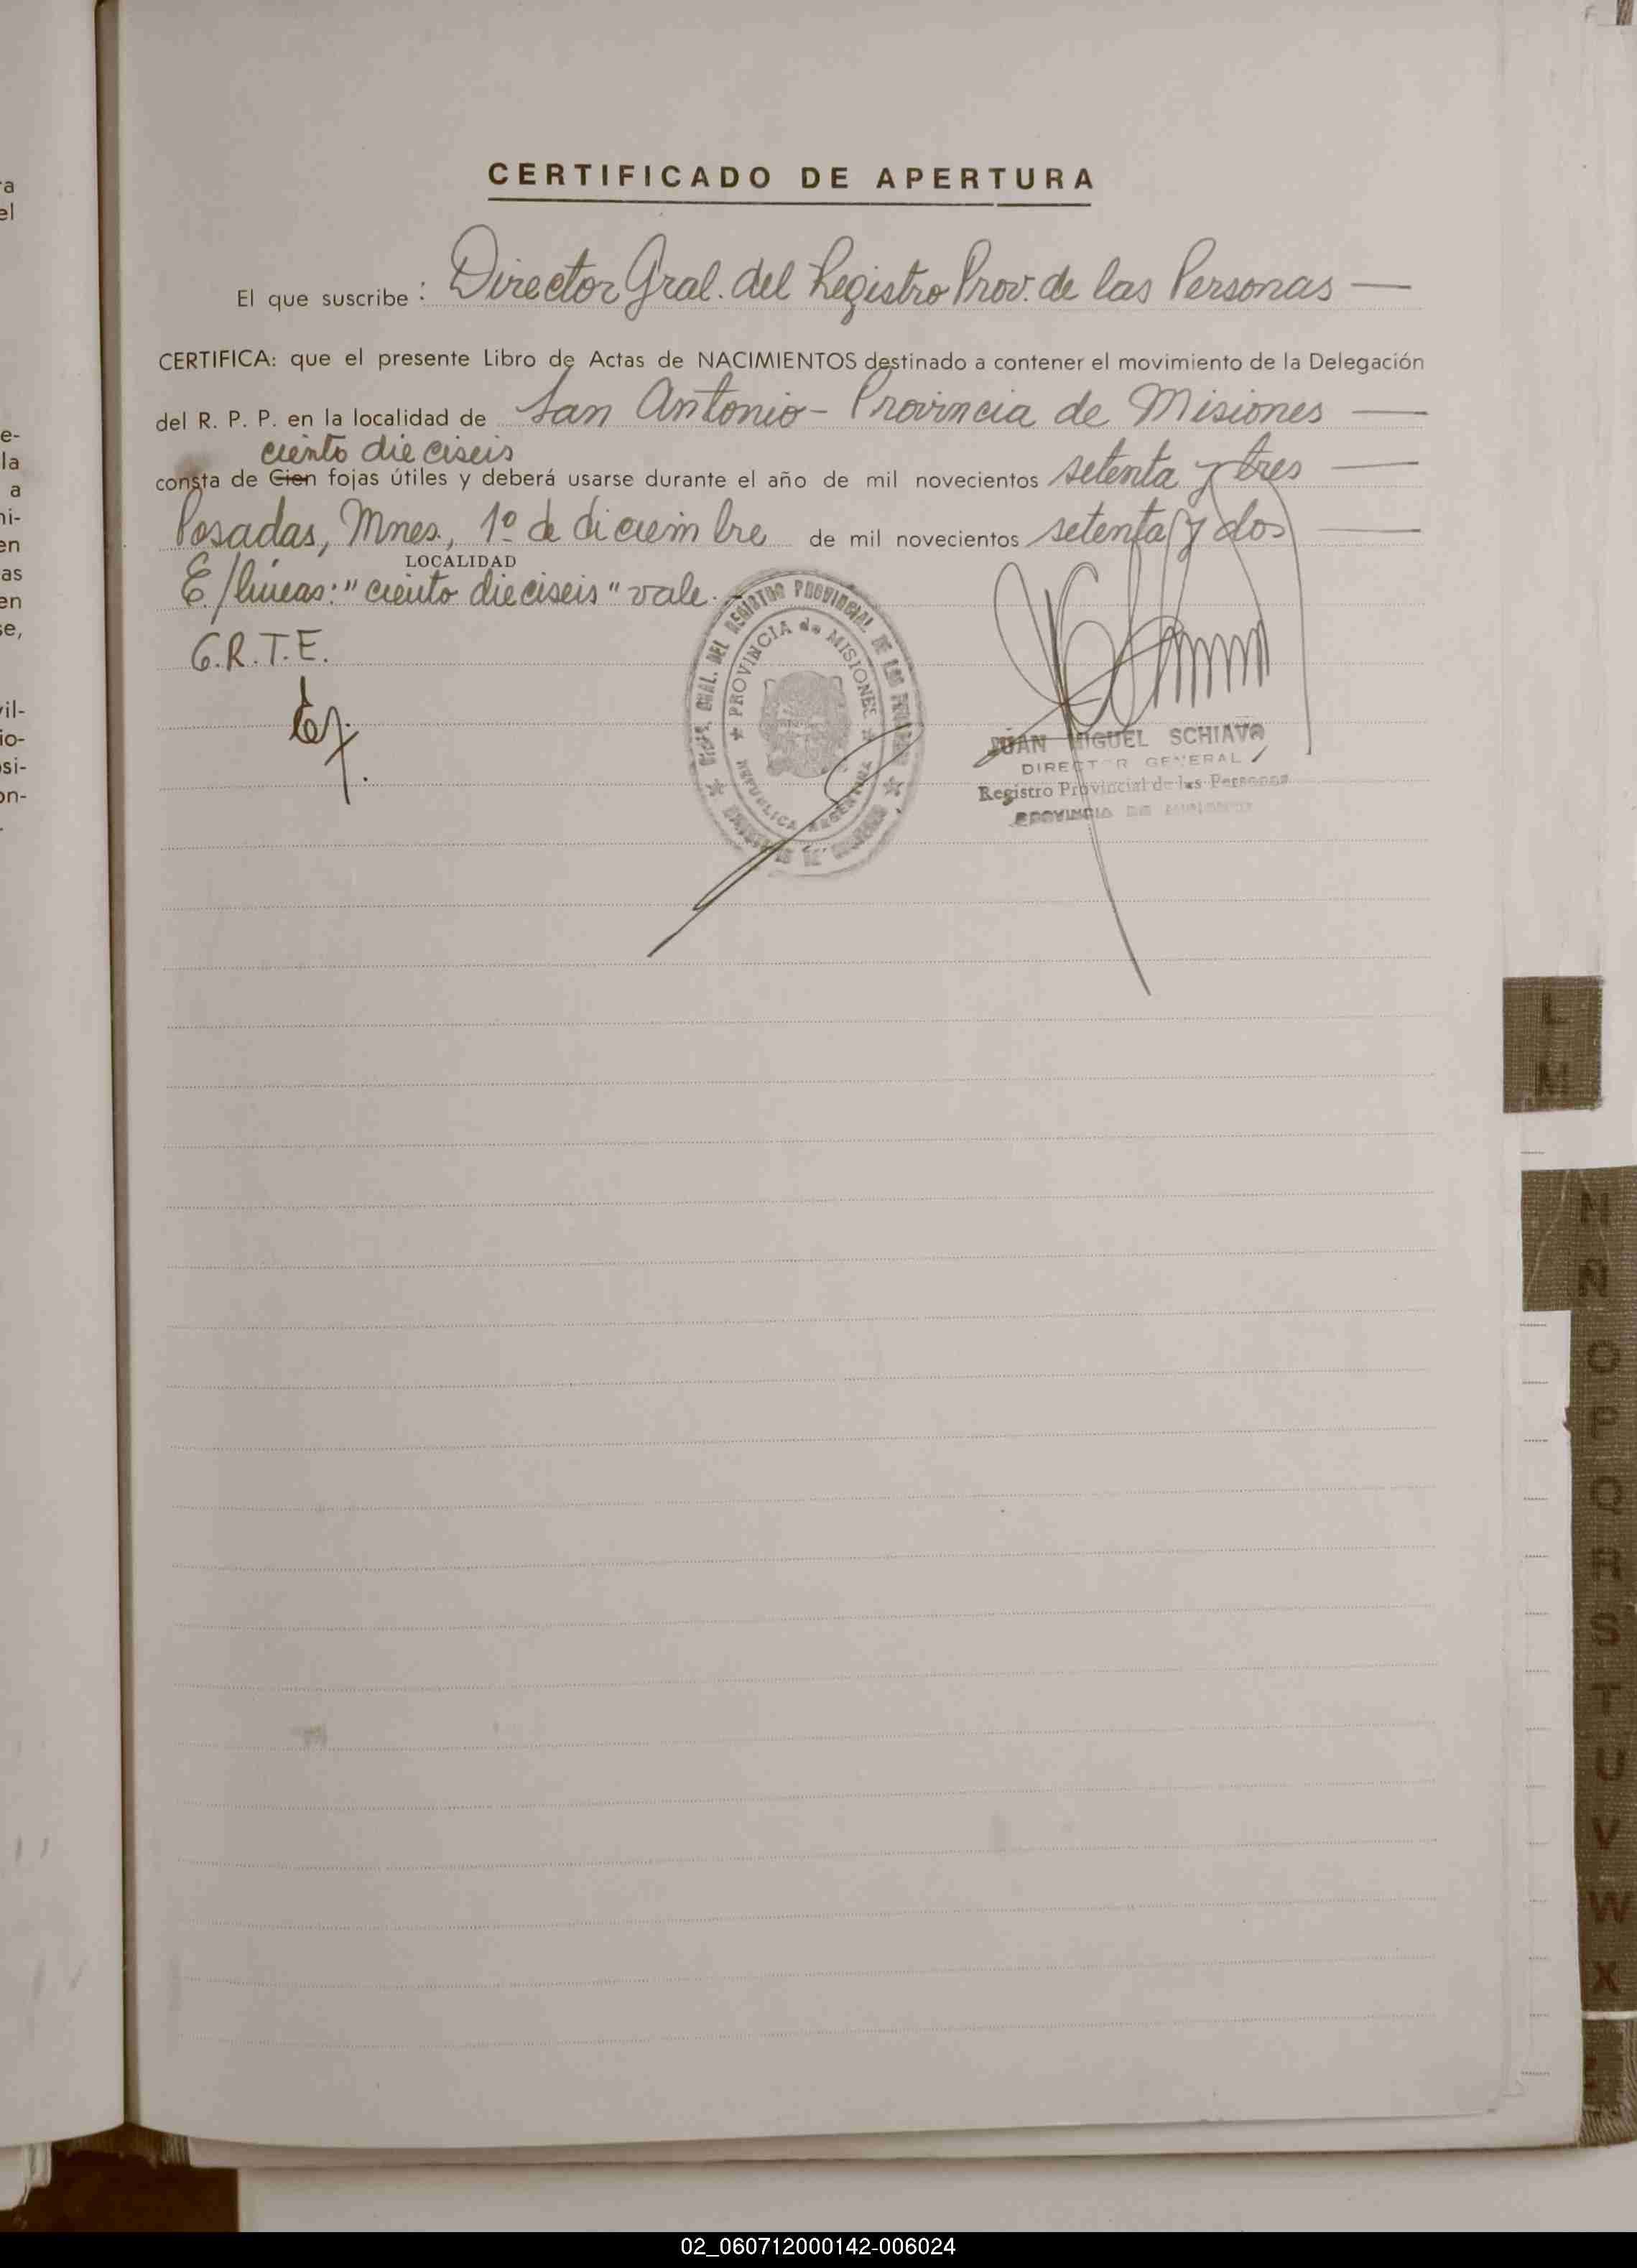 CERTIFICADO DE APERTURA
El que suscribe: Director Gral. del Registro Prov. de las Personas —
CERTIFICA: que el presente Libro de Actas de NACIMIENTOS destinado a contener el movimiento de la Delegación
del R. P. P. en la localidad de San Antonio - Provincia de Misiones —
ciento dieciseis
consta de Cien fojas útiles y deberá usarse durante el año de mil novecientos setenta y tres —
Posadas, Mnes., 1º de diciembre de mil novecientos setenta y dos —
LOCALIDAD
E/líneas: "ciento dieciseis" vale.
G.R.T.E.
DEL REGISTRO PROVINCIAL DE LAS
★ PROVINCIA de MISIONES ★
REPUBLICA ARGENTINA
JUAN MIGUEL SCHIAVO
DIRECTOR GENERAL
Registro Provincial de las Personas
PROVINCIA DE MISIONES
L
M
N
Ñ
O
P
Q
R
S
T
U
V
W
X
02_060712000142-006024